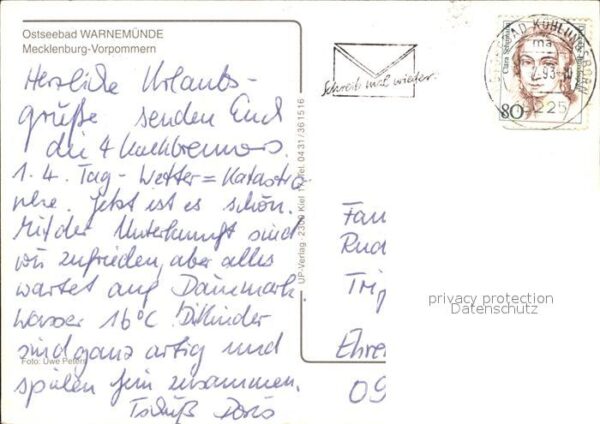 Ostseebad WARNEMÜNDE
Mecklenburg-Vorpommern
Herzliche Urlaubs-
grüße senden Euch
die 4
1.-4. Tag - Wetter = Katastro
phe. Jetzt ist es schön.
Mit der Unterkunft sind
wir zufrieden, aber alles
wartet auf Dänemark.
Wasser 16°C. Die Kinder
sind ganz artig und
spielen fein zusammen.
Tschüß Doris
Foto: Uwe Peters
UP-Verlag · 2300 Kiel 17, Tel. 0431/361516
Schreib mal wieder!
80
225
Fam
Rud
Ehre
09
privacy protection
Datenschutz